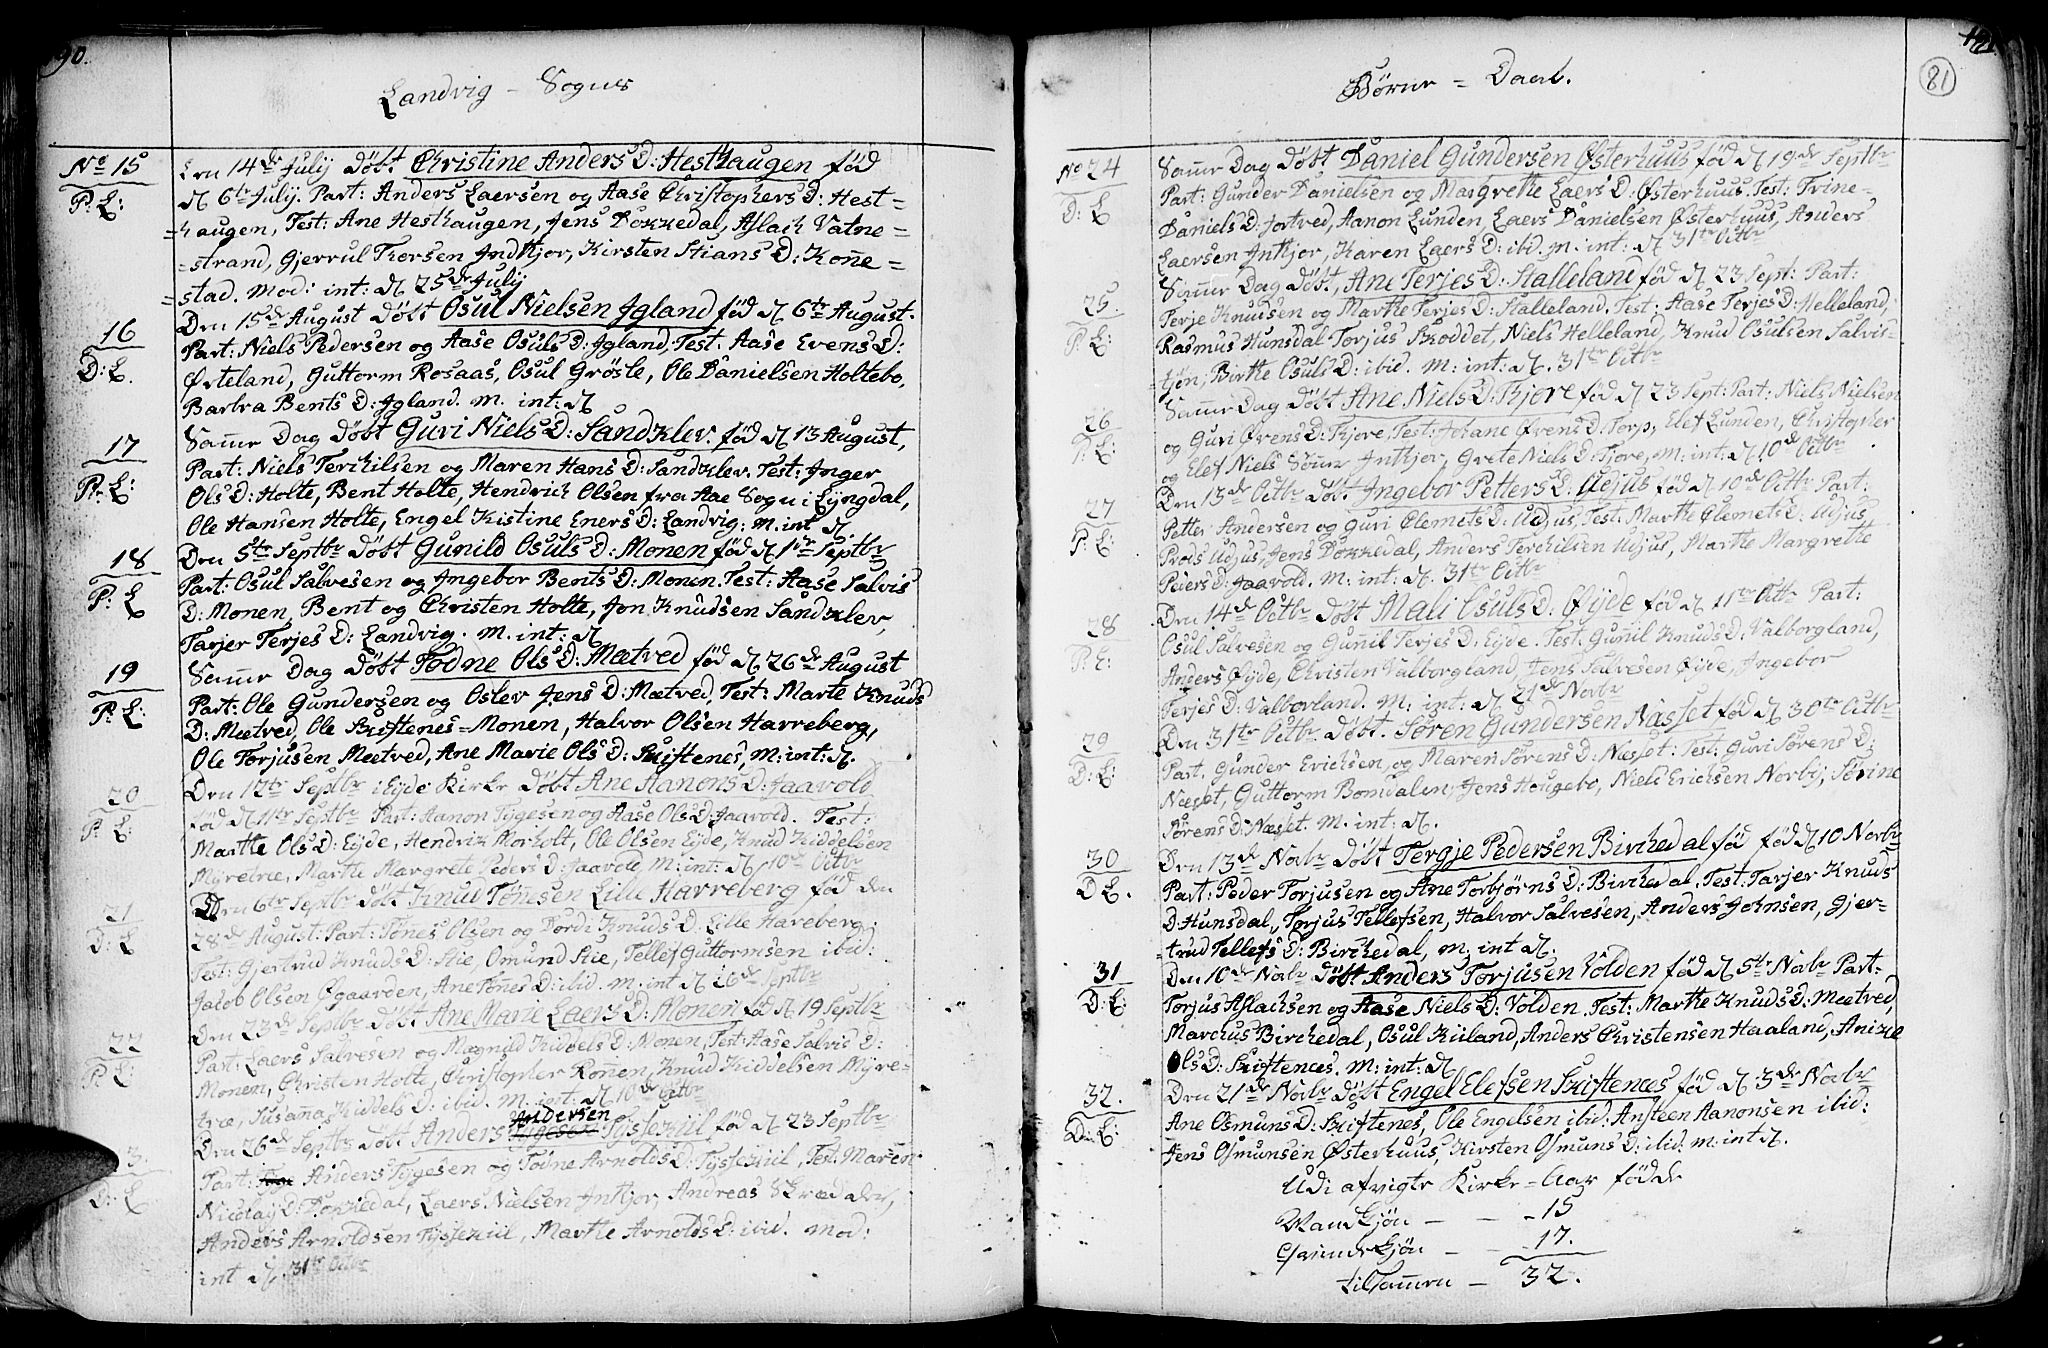 90.
Landvig - Sogns
No 15
P: L:
Den 14de July Döbt Christine Anders D: Hesthaugen föd
d 6te July. Part: Anders Laersen og Aase Christophers D: Hest=
=haugen, Test: Ane Hesthaugen, Jens Dokkedal, Aslach Vatne=
=strand, Gjerrul Thorsen Indthjor, Kirsten Stians D: Kone=
=stad. Mod: int: d 25de July
16
D: L.
Den 15de August Döbt Osul Nielsen Igland föd d 6te August.
Part: Niels Pedersen og Aase Osuls D: Igland, Test. Aase Evens D:
Østeland, Guttorm Rosaas, Osul Grösle, Ole Danielsen Holtebo,
Barbra Bents D: Igland. M. int: d
17
P: L:
Samme Dag Döbt Guri Niels D: Sandklev. föd d 13 August,
Part: Niels Terchilsen og Maren Hans D: Sandklev. Test: Inger
Ols D: Holte, Bent Holte, Hendrich Olsen fra Aae Sogn i Lyngdal,
Ole Hansen Holte, Engel Kistine Eners D: Landvig: M. int d.
18
P: L
Den 5te Septbr Döbt Gunild Osuls D: Monen föd d 1te Septbr
Part: Osul Salvesen og Ingebor Bents D: Monen. Test: Aase Salvis
D: Monen, Bent og Christen Holte, Jon Knudsen Sandklev,
Tarjer Terjes D: Landvig. M. int: d
19
P: L:
Samme Dag Döbt Todne Ols D: Mætved föd d 26de August
Part: Ole Gundersen og Oslev Jens D: Mætved, Test: Marte Knuds
D: Mætved, Ole Skiftenes=Monen, Halvor Olsen Harreberg,
Ole Torjusen Mætved, Ane Marie Ols D: Skiftenes, M: int: d.
20
P: L:
Den 12te Septbr i Eyde Kirke Döbt Ane Aanons D: Jaavold
föd d 11te Septbr Part: Aanon Tygesen og Aase Ols D: Jaavold. Test:
Marthe Ols D: Eyde, Hendrik Morholt, Ole Olsen Eyde, Knud Kiddelsen
Myretræe, Marthe Margrete Peders D: Jaavold, M: int: d 10de Octbr
21
D: L
Den 6te Septbr Döbt Knud Tönesen Lille Harreberg föd den
28de August: Part: Tönes Olsen og Dordi Knuds D: Lille Hareberg,
Test: Gjertrud Knuds D: Kie, Omund Kie, Tellef Guttormsen ibid:
Jacob Olsen Øgaarden, Ane Tönes D: ibid. M. int d 26de Septbr
22
P: L:
Den 23de Septbr Döbt Ane Marie Laers D: Monen föd d 19 Septbr
Part: Laers Salvesen og Magnild Kiddels D: Monen, Test: Aase Salvis D:
Monen, Christen Holte, Christopher Ronen, Knud Kiddelsen Myre=
træe, Susanna Kiddels D: ibid. M. int: d 10de Octbr
3.
D: L
Den 26de Septbr Döbt Anders Andersen Tyssekiil föd d 23 Septbr
Part: Anders Tygesen og Todne Arnolds D: Tyssekiil, Test: Maren
Nicolay D: Dokkedal, Laers Nielsen Inthjor, Andreas Skrædder,
Anders Arnoldsen Tyssekiil, Marthe Arnolds D: ibid. Mod:
int d. 31te Octbr
Börne = Daab.
81
No 24
D: L
Samme Dag Döbt Daniel Gundersen Østerhuus föd d 19de Septbr
Part: Gunder Danielsen og Margrethe Laers D: Østerhuus. Test: Trine=
Daniels D: Jortved, Aanon Lunden, Laers Danielsen Østerhuus, Anders
Laersen Inthjor, Karen Laers D: ibid. M. int: d 31te Octbr
25.
P: L:
Samme Dag Döbt, Ane Terjes D: Stalleland föd d 23 Sept: Part:
Terje Knudsen og Marthe Terjes D: Stalleland. Test: Aase Terjes D: Helleland,
Rasmus Hunsdal Torjus Broddet, Niels Helleland, Knud Osulsen Salvis=
tjön, Birthe Osuls D: ibid. M: int: d. 31te Octbr
26
P: L:
Samme Dag Döbt Ane Niels D: Fjore föd d 23 Sept: Part: Niels Nielsen
og Guri Ørens D: Fjore, Test: Johane Ørens D: Torp, Elef Lunden, Christopher
og Elef Niels Sönner Inthjor, Grete Niels D: Fjore, M: int: d 10de Octbr
27
P: L:
Den 13de Octbr Döbt Ingebor Petters D: Udjus föd d 10de Octbr Part:
Petter Andersen og Guri Clemets D: Udjus, Test: Marthe Clemets D: Udjus
Proes Udjus, Jens Dokkedal, Anders Terchilsen Udjus, Marthe Margrethe
Peiers D: Jaavold. M: int: d. 31te Octbr
28
P: L:
Den 14de Octbr Döbt Mali Osuls D: Øyde föd d 11te Octbr Part:
Osul Salvesen og Gunnil Terjes D: Eyde. Test: Gunnil Knuds D: Valborgland,
Anders Øyde, Christen Valborgland, Jens Salvesen Øyde, Ingebor
Terjes D: Valborland. M: int: d 21de Novbr
29
D: L:
Den 31te Octbr Döbt. Sören Gundersen Næsset föd d 30te Octbr
Part, Gunder Erichsen, og Maren Sörens D: Næsset: Test: Guri Sörens D:
Næset, Guttorm Bomdalen, Jens Hougebo, Niels Erichsen Norbÿ, Sörine
Sörens D: Næsset. M. int: d.
30
D L.
Den 13de Novbr Döbt Tergje Pedersen Birchedal föd föd d 10 Novbr
Part: Peder Torjusen og Ane Torbjörns D: Birchedal, Test: Tarjer Knuds
D: Hunsdal, Torjus Tellefsen, Halvor Salvesen, Anders Johnsen, Gjer=
=trud Tellefs D: Birchedal, M. int d.
31
D: L:
Den 16de Novbr Döbt Anders Torjusen Volden föd d 5te Novbr Part=
Torjus Aslachsen og Aase Niels D: Volden. Test: Marthe Knuds D: Mætved,
Marchus Birchedal, Osul Kiiland, Anders Christensen Haaland, Anikle
Ols D: Skiftences. M: int: d
32.
D: L:
Den 21de Novbr Döbt Engel Elefsen Skiftences föd d 3de Novbr
Ane Osmuns D: Skiftenes, Ole Engelsen ibid: Ansteen Aanonsen ibid:
Jens Osmunsen Østerhuus, Kirsten Osmuns D: ibid: M: int d.
Udi afvigte Kirke=Aar födde
Mandkjön - - 15
Qvindekjön - - 17.
tilsammen - 32.